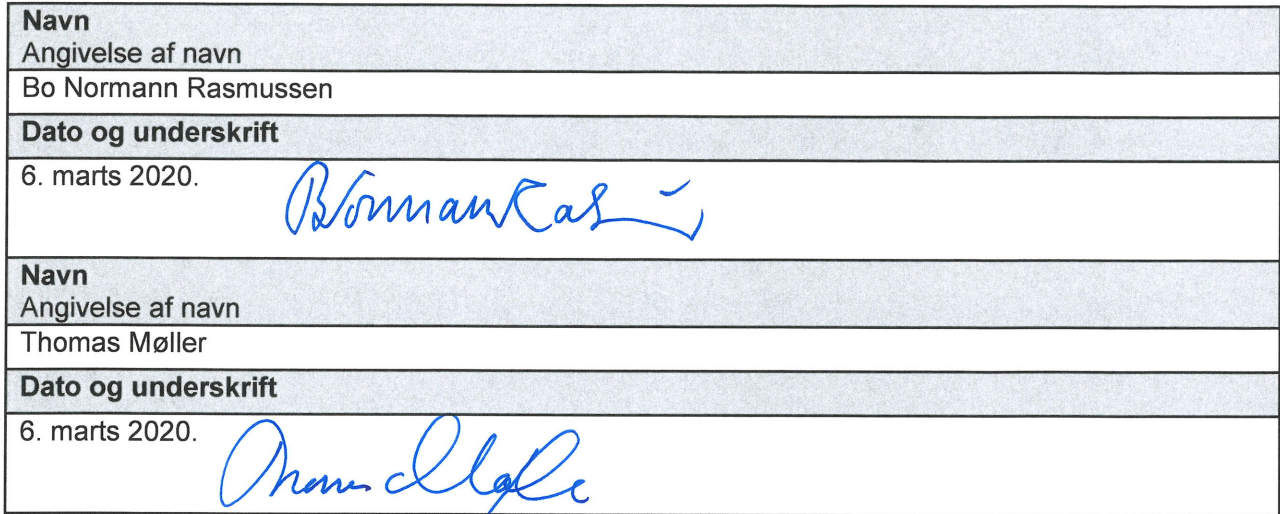 Navn
Angivelse af navn
Bo Normann Rasmussen
Dato og underskrift
6. marts 2020.
Navn
Angivelse af navn
Thomas Møller
Dato og underskrift
6. marts 2020.